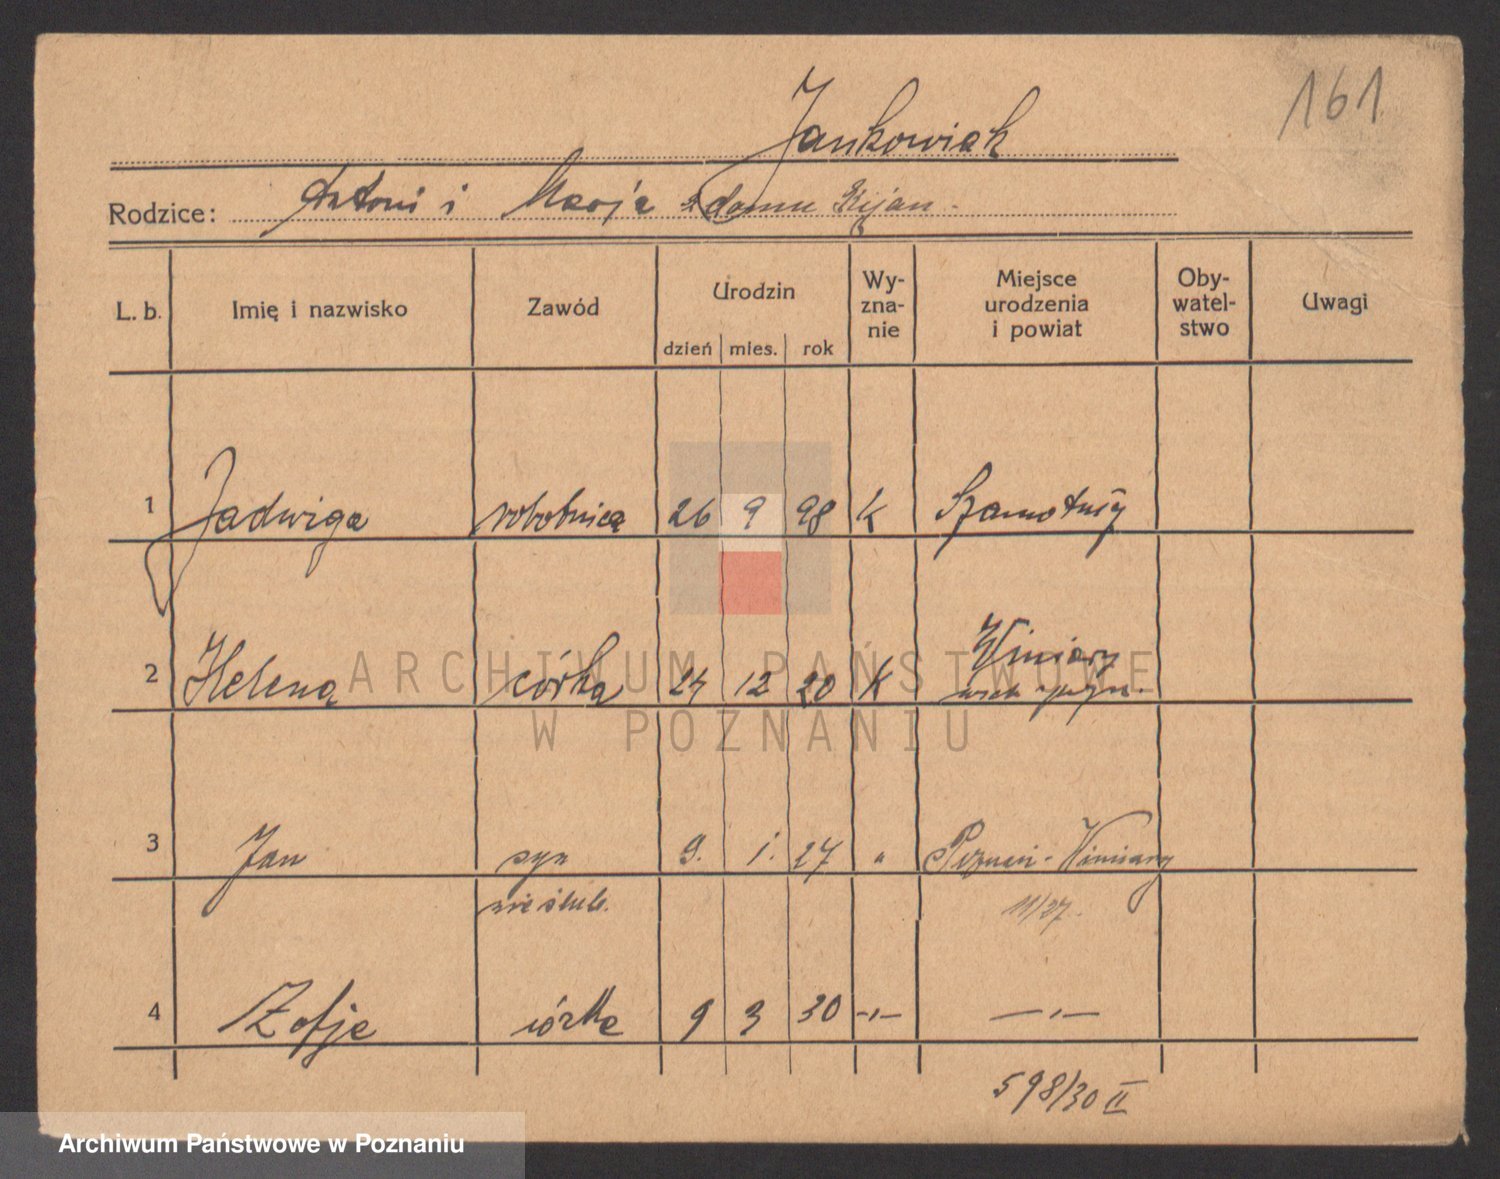 161
Jankowiak
Rodzice: Antoni i Marja z domu Kijan
L. b. Imię i nazwisko Zawód Urodzin dzień mies. rok Wy-zna-nie Miejsce urodzenia i powiat Oby-watel-stwo Uwagi
1 Jadwiga robotnica 26 9 98 K Szamotuły
Winiary
2 Helena córka 24 12 20 K
3 Jan syn 9. 1. 27 " Poznań-Winiary
nieślub. 11/27.
4 Zofja córka 9 3 30 -"- -"-
598/30 II
ARCHIWUM PAŃSTWOWE
W POZNANIU
Archiwum Państwowe w Poznaniu